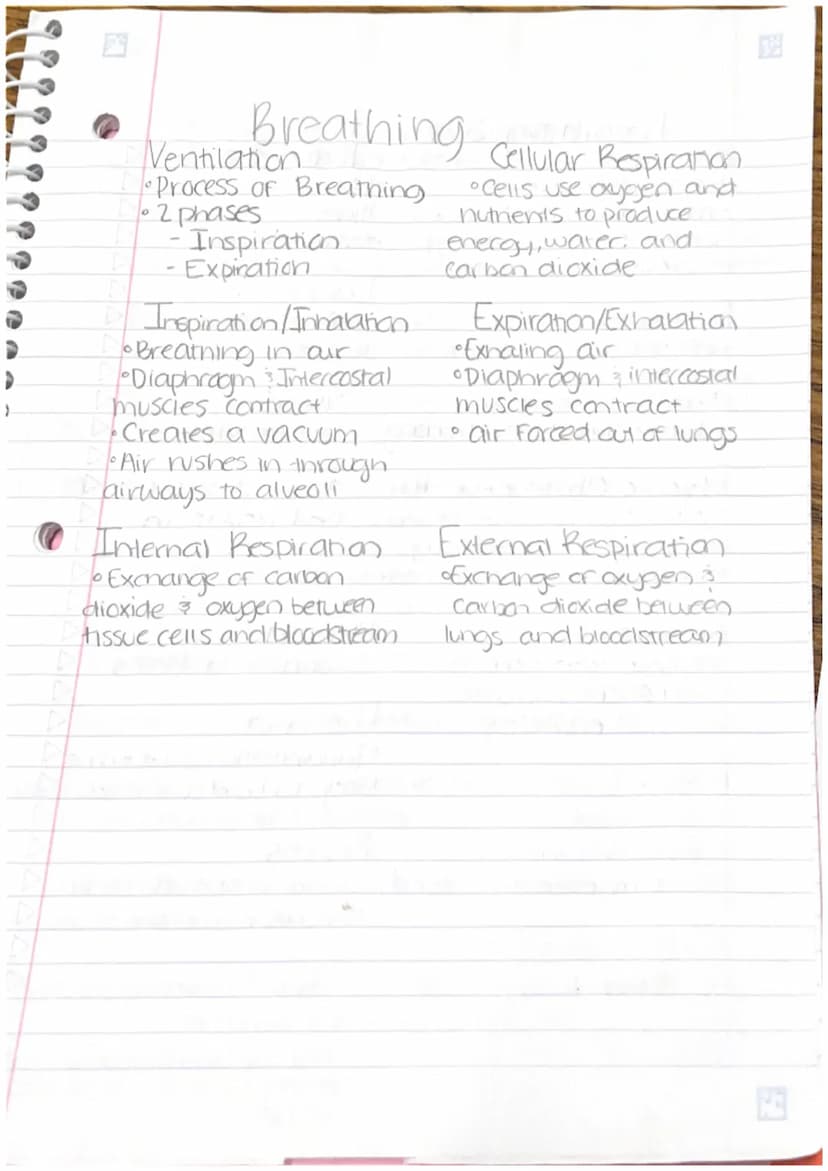 Breathing
Ventilation
• Process of Breathing
• 2 phases
- Inspiration
- Expiration
Cellular Respiration
• Cells use oxygen and
nutrients to produce
energy, water, and
carbon dioxide
Inspiration/Inhalation
• Breathing in air
• Diaphragm & Intercostal
muscles contract
• Creates a vacuum
• Air rushes in through
airways to alveoli
Expiration/Exhalation
• Exhaling air
• Diaphragm & intercostal
muscles contract
• air forced out of lungs
Internal Respiration
• Exchange of carbon
dioxide & oxygen between
tissue cells and bloodstream
External Respiration
• Exchange of oxygen &
carbon dioxide between
lungs and bloodstream